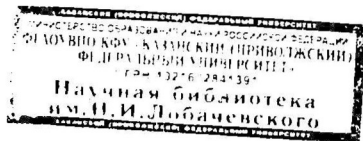 КАЗАНСКИЙ (ПРИВОЛЖСКИЙ) ФЕДЕРАЛЬНЫЙ УНИВЕРСИТЕТ
МИНИСТЕРСТВО ОБРАЗОВАНИЯ И НАУКИ РОССИЙСКОЙ ФЕДЕРАЦИИ
ФГАОУВПО КФУ «КАЗАНСКИЙ (ПРИВОЛЖСКИЙ)
ФЕДЕРАЛЬНЫЙ УНИВЕРСИТЕТ»
Научная библиотека
им. Н.И. Лобачевского
КАЗАНСКИЙ (ПРИВОЛЖСКИЙ) ФЕДЕРАЛЬНЫЙ УНИВЕРСИТЕТ